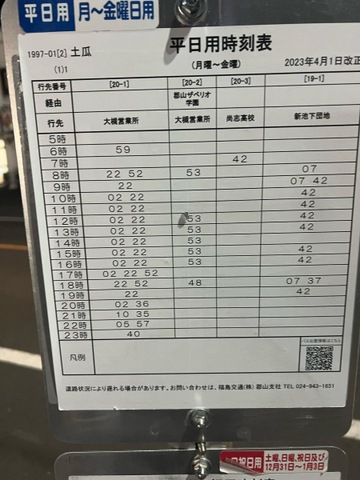 平日用 月～金曜日用
1997-01[2] 土瓜
平日用時刻表
(1)1
(月曜～金曜)
2023年4月1日改正
行先番号 [20-1] [20-2] [20-3] [19-1]
経由 郡山ザベリオ学園
行先 大槻営業所 大槻営業所 尚志高校 新池下団地
5時
6時 59
7時 42
8時 22 52 53 07
9時 22 07 42
10時 02 22 42
11時 02 22 42
12時 02 22 53 42
13時 02 22 53 42
14時 02 22 53
15時 02 22 53 42
16時 02 22 53 42
17時 02 22 52
18時 22 52 48 07 37
19時 22 42
20時 02 36
21時 10 35
22時 05 57
23時 40
凡例
バス位置情報はこちら
道路状況により遅れる場合があります。お問い合わせは、福島交通(株)郡山支社 TEL 024-943-1651
土曜、日曜、祝日及び
12月31日～1月3日